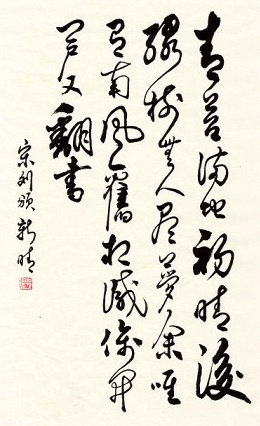 青苔满地初晴後
绿树無人昼夢余唯
有南风舊相识偷开
门户又翻書
宋刘颁新晴